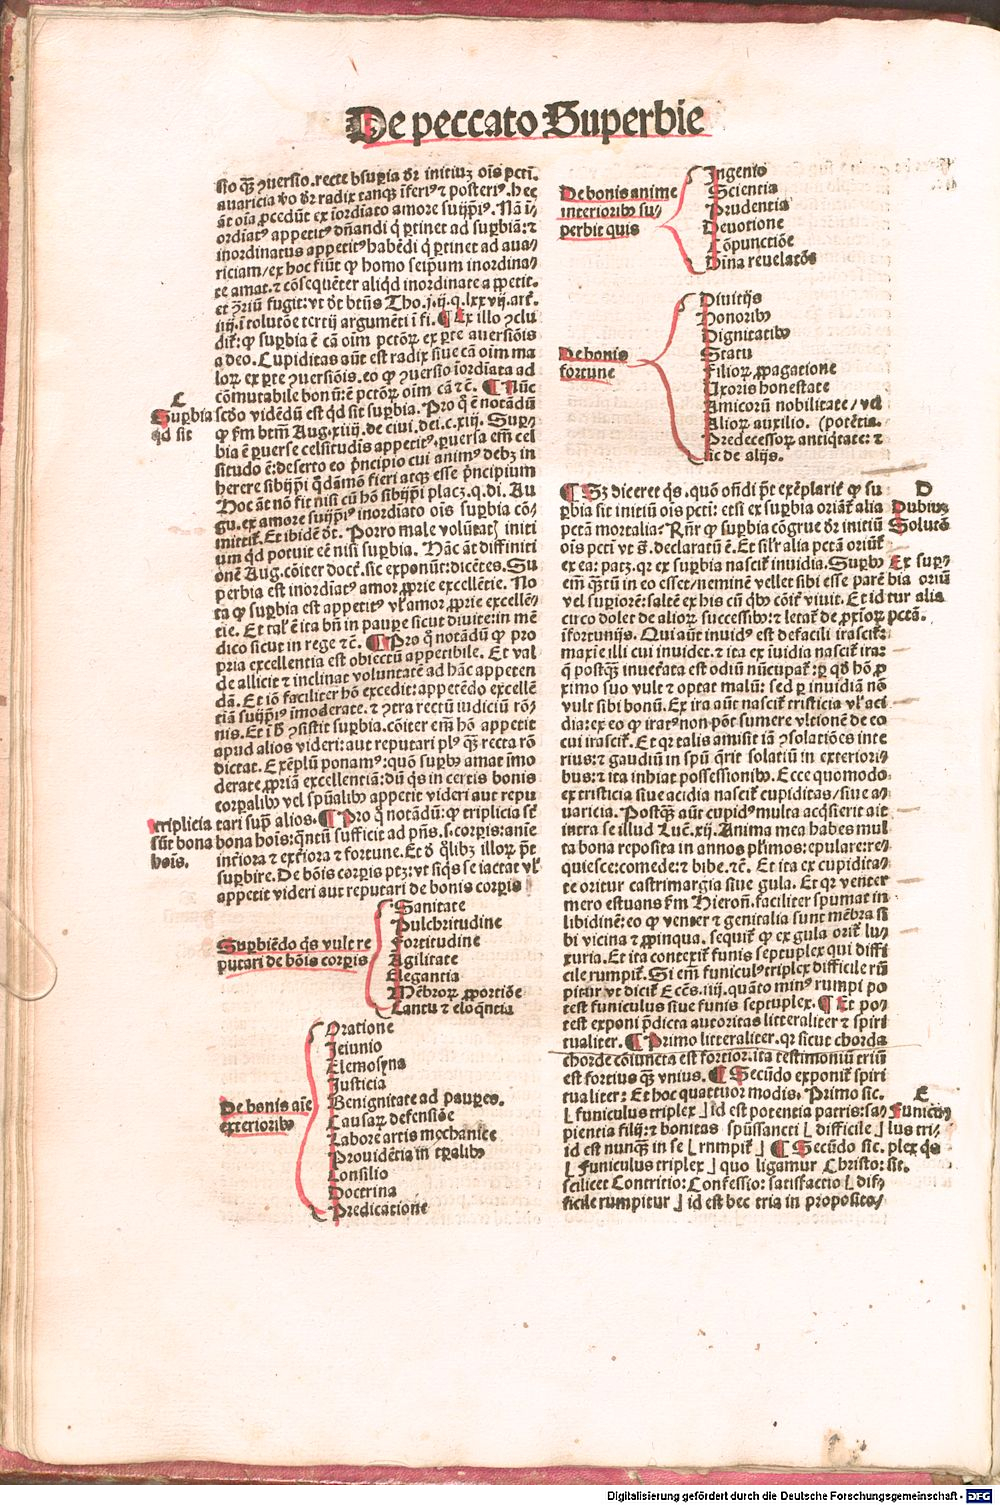 De peccato Superbie
sio qȝ ꝯuersio. recte hsuꝑia dr̄ initiuȝ oīs pctī.
auaricia vͦo dr̄ radix tanqȝ īferiꝰ ⁊ posteriꝰ. hec
āt oīa ꝓcedūt ex iordīato amore suijpīꝰ. Nā ī
ordīatꝰ appetitꝰ dn̄andi q̇ ꝑtinet ad suꝑbiā: ⁊
inordinatus appetitꝰ habēdi q̇ ꝑtinet ad aua/
riciam/ex hoc fiūt ꝙ homo seipm̄ inordina/
te amat. ⁊ cōsequēter aliqd inordinate appetit.
et ꝯr̄iū fugit: vt dr̄ btūs Tho. j. ij. q. lxxvij. art̄.
iiij. ī solutōe tertij argumēti ī fi. ¶ Ex illo ꝯclu
dit̄: ꝙ suꝑbia ē cā oīm pctōꝝ ex ꝑte auersiōis
a deo. Cupiditas aūt est radix siue cā oīm ma
loꝝ ex ꝑte ꝯuersiōis. eo ꝙ ꝯuersio īordīata ad
cōmutabile bonū: ē pctōꝝ oīm cā ⁊c̄. ¶ Nūc
C
Suꝑbia
qd sit
scd̄o vidēdū est qd sit suꝑbia. Pro q̄ ē notādū
ꝙ fm̄ btm̄ Aug. xiiij. de ciui. dei. c. xiij. Suꝑ/
bia ē ꝑuerse celsitudis appetitꝰ. ꝑuersa em̄ cel
situdo ē: deserto eo pⁱncipio cui animꝰ debȝ in
herere sibijpi q̇dāmō fieri atqȝ esse pⁱncipium
Hoc āt nō fit nisi cū hō sibijpi placȝ. q. di. Au
gu. ex amore suijpīꝰ inordīato ois suꝑbia cō/
mittit̄. Et ibidē dr̄. Porro male volūtatȝ initi
um qd potuit eē nisi suꝑbia. Hāc āt diffiniti
onē Aug. cōiter doct̄. sic exponūt: dicētes. Su
perbia est inordiatꝰ amor ꝓprie excellētie. No
ta ꝙ suꝑbia est appetitꝰ vl̄ amor ꝓprie excellē/
tie. Et tal̄ ē ita bn̄ in pauꝑe sicut diuite: in mē
dico sicut in rege ⁊c̄. ¶ Pro q̄ notādū ꝙ pro
pria excellentia est obiectū appetibile. Et val
de allicit ⁊ inclinat voluntatē ad hāc appeten
dā. Et iō faciliter hō excedit: appetēdo excellē
tiā suijpīꝰ īmoderate. ⁊ ꝯtra rectū iudiciū rō/
nis. Et ī h̄ ꝯsistit suꝑbia. cōiter em̄ hō appetit
apud alios videri: aut reputari plꝰ qȝ recta rō
dictat. Exēplū ponamꝰ: quō suꝑbꝰ amat īmo
derate ꝓpriā excellentiā: dū q̇s in certis bonis
corꝑalibꝰ vel spūalibꝰ appetit videri aut repu
triplicia
sūt bona
hoīs.
tari supͣ alios. ¶ Pro q̄ notādū: ꝙ triplicia sūt
bona hoīs: qn̄tū sufficit ad pn̄s. s. corꝑis: anīe
int̄iora ⁊ ext̄iora ⁊ fortune. Et dͦ qͦlibȝ illoꝝ pōt
suꝑbire. De bōnis corꝑis ptȝ: vt siq̇s se iactat vl̄
appetit videri aut reputari de bonis corꝑis
Suꝑbiēdo q̇s vult re
putari de bōnis corꝑis
Sanitate
Pulchritudine
Fortitudine
Agilitate
Elegantia
Mēbroꝝ ꝓportiōe
Cantu ⁊ eloqn̄tia
De bonis aīe
exterioribꝰ
Oratione
Jeiunio
Elemosyna
Justicia
Benignitate ad pauꝑes.
Causaꝝ defensiōe
Labore artis mechanice
Prouidētia in tꝑalibꝰ
Consilio
Doctrina
Predicatione
De bonis anime
interioribꝰ su/
perbit quis
Ingenio
Scientia
Prudentia
Deuotione
Cōpunctiōe
Diuina reuelatōe
De bonis
fortune
Diuitijs
Honoribꝰ
Dignitatibꝰ
Statu
Filioꝝ ꝓpagatione
Uxoris honestate
Amicorū nobilitate/vel
Alioꝝ auxilio. (potētia.
Predecessoꝝ antiq̇tate: ⁊
sic de alijs.
¶ Sȝ diceret q̇s. quō on̄di pōt exēplarit̄ ꝙ su
ꝑbia sit initiū ois pcti: etsi ex suꝑbia oriāt̄ alia
pctā mortalia? Rn̄r ꝙ suꝑbia cōgrue dr̄ initiū
D
Dubiuȝ
Solutō
ois pcti vt s̄. declaratū ē. Et silr̄ alia pctā oriūt̄
ex ea: patȝ. qr ex suꝑbia nascit̄ inuidia. Suꝑbꝰ
em̄ qȝtū in eo esset/neminē vellet sibi esse parē
vel suꝑiorē: saltē ex his cū qͥbꝰ cōit̄ viuit. Et id
Ex suꝑ/
bia oriū
tur alia
pctā.
circo dolet de alioꝝ successibꝰ: ⁊ letat̄ de ꝓxioꝝ
īfortunijs. Qui aūt inuidꝰ est defacili irascit̄:
maxīe illi cui inuidet. ⁊ ita ex īuidia nascit̄ ira:
q̄ postqȝ inuet̄ata est odiū nūcupat̄: ꝑ qd hō ꝓ
ximo suo vult ⁊ optat malū: sed ꝑ inuidiā nō
vult sibi bonū. Ex ira aūt nascit̄ tristicia vl̄ aci
dia: ex eo ꝙ iratꝰ non pōt sumere vltionē de eo
cui irascit̄. Et qr talis amisit iā ꝯsolatiōes inte
rius: ⁊ gaudiū in spū q̄rit solatiū in exteriori/
bus: ⁊ ita inhiat possessionibꝰ. Ecce quomodo
ex tristicia siue acidia nascit̄ cupiditas/siue a/
uaricia. Postqȝ aūt cupidꝰ multa acq̇sierit ait
intra se illud Luc̄. xij. Anima mea habes mul
ta bona reposita in annos pl̄imos: epulare: re/
quiesce: comede: ⁊ bibe. ⁊c̄. Et ita ex cupidita/
te oritur castrimargia siue gula. Et qr venter
mero estuans fm̄ Hieron̄. faciliter spumat in
libidinē: eo ꝙ venter ⁊ genitalia sunt mēbra si
bi vicina ⁊ ꝓpinqua. sequit̄ ꝙ ex gula orit̄ lu/
xuria. Et ita contexit̄ funis septuplex qui diffi
cile rumpit̄. Si em̄ funiculꝰ triplex difficile rū
pitur vt dicit̄ Ecc̄s. iiij. quāto minꝰ rumpi po
test funiculus siue funis septuplex. ¶ Et po/
test exponi p̄dicta autoritas litteraliter ⁊ spiri
tualiter. ¶ Primo litteraliter. qr sicut chorda
chorde cōiuncta est fortior. ita testimoniū triū
est fortius qȝ vnius. ¶ Secūdo exponit̄ spiri
tualiter: Et hoc quattuor modis. Primo sic.
⌊ funiculus triplex ⌋ id est potentia patris: sa/
pientia filij: ⁊ bonitas spūssancti ⌊ difficile ⌋
id est nunqȝ in se ⌊ rnmpit̄ ⌋ ¶ Secūdo sic.
E
Funicu/
lus tri/
plex q̇s
sit.
⌊ Funiculus triplex ⌋ quo ligamur Christo:
scilicet Contritio: Confessio: satisfactio ⌊ dif/
ficile rumpitur ⌋ id est hec tria in proposito/
Digitalisierung gefördert durch die Deutsche Forschungsgemeinschaft - DFG